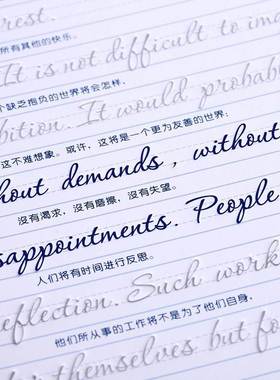 rest.
所有其他的快乐。
It is not difficult to im
个缺乏抱负的世界将会怎样，
bition. It would probabl
这不难想象。或许，这将是一个更为友善的世界：
hout demands, without
没有渴求，没有磨擦，没有失望。
sappointments. People
人们将有时间进行反思。
eflection. Such work
他们所从事的工作将不是为了他们自身，
themselves but fo